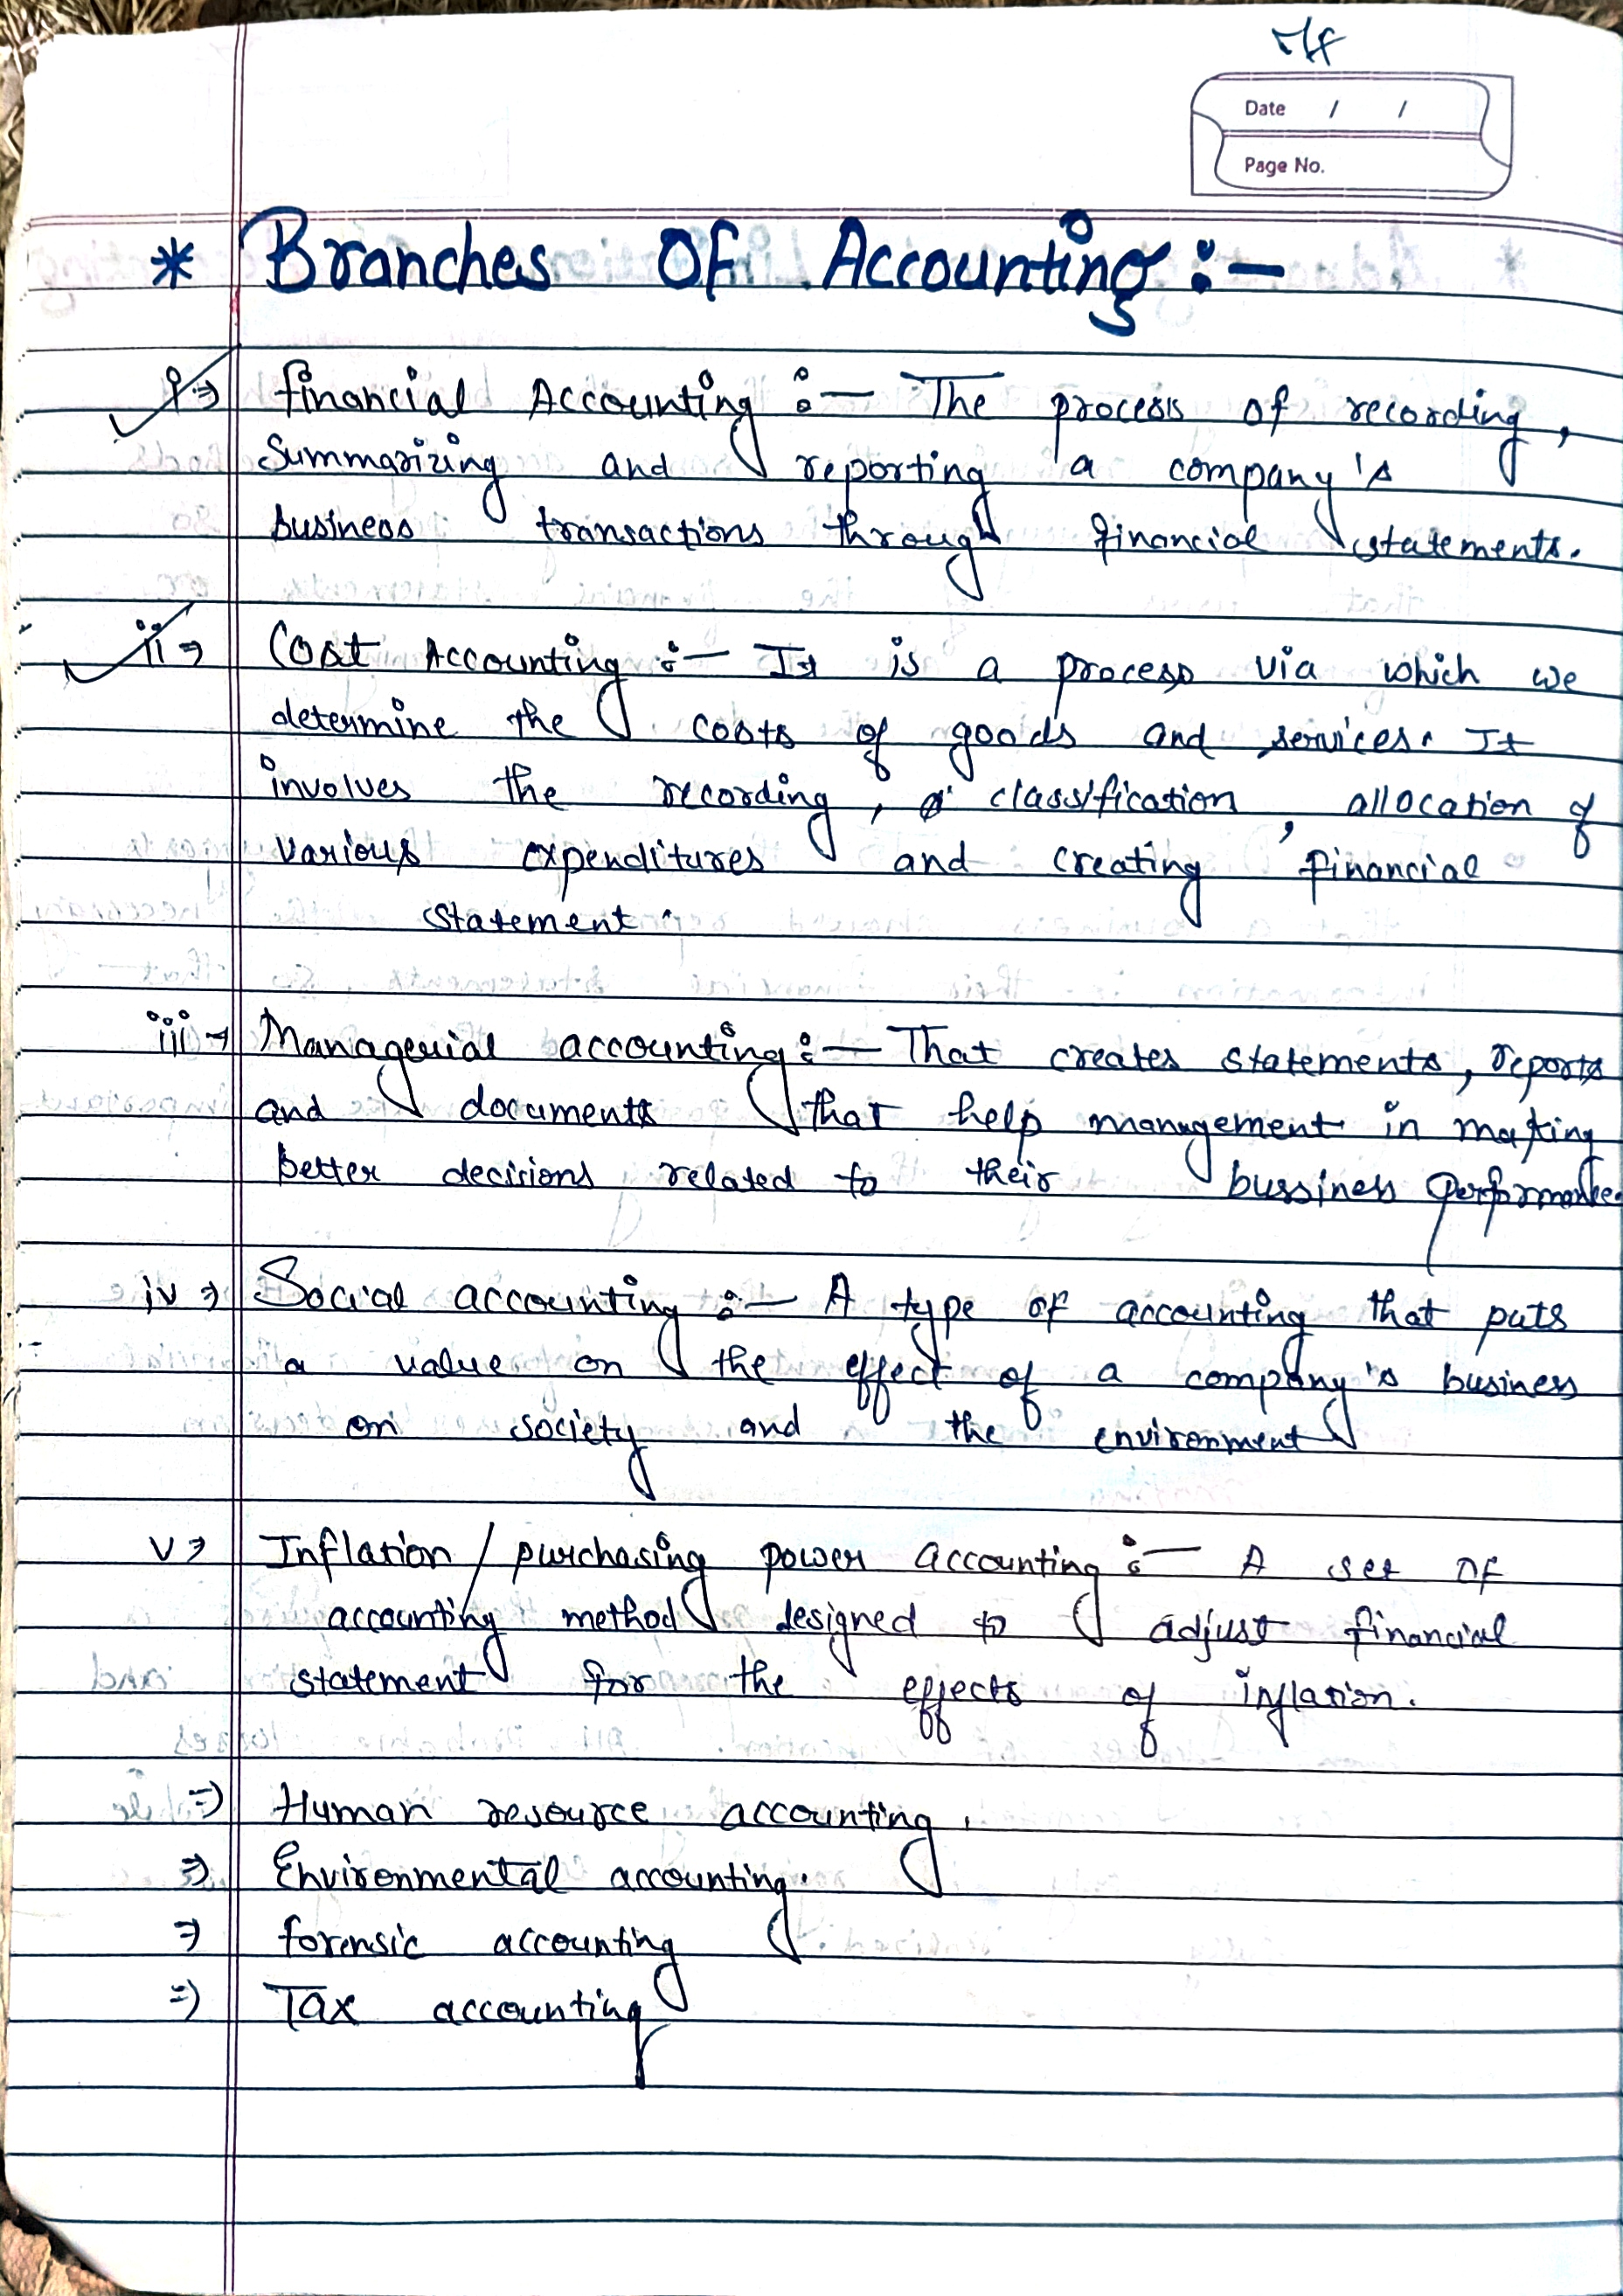 Date / /
Page No.
* Branches Of Accounting :-
i⇒ financial Accounting :- The process of recording,
Summarizing and reporting a company's
business transactions through financial statements.
ii⇒ Cost Accounting :- It is a process via which we
determine the costs of goods and services. It
involves the recording, classification, allocation of
various expenditures and creating financial
statement.
iii→ Managerial accounting :- That creates statements, reports
and documents that help management in making
better decisions related to their bussiness performance.
iv⇒ Social accounting :- A type of accounting that puts
a value on the effect of a company's business
on society and the environment
v⇒ Inflation / purchasing power accounting :- A set of
accounting method designed to adjust financial
statement for the effects of inflation.
⇒ Human resource accounting.
⇒ Environmental accounting.
⇒ forensic accounting
⇒ Tax accounting